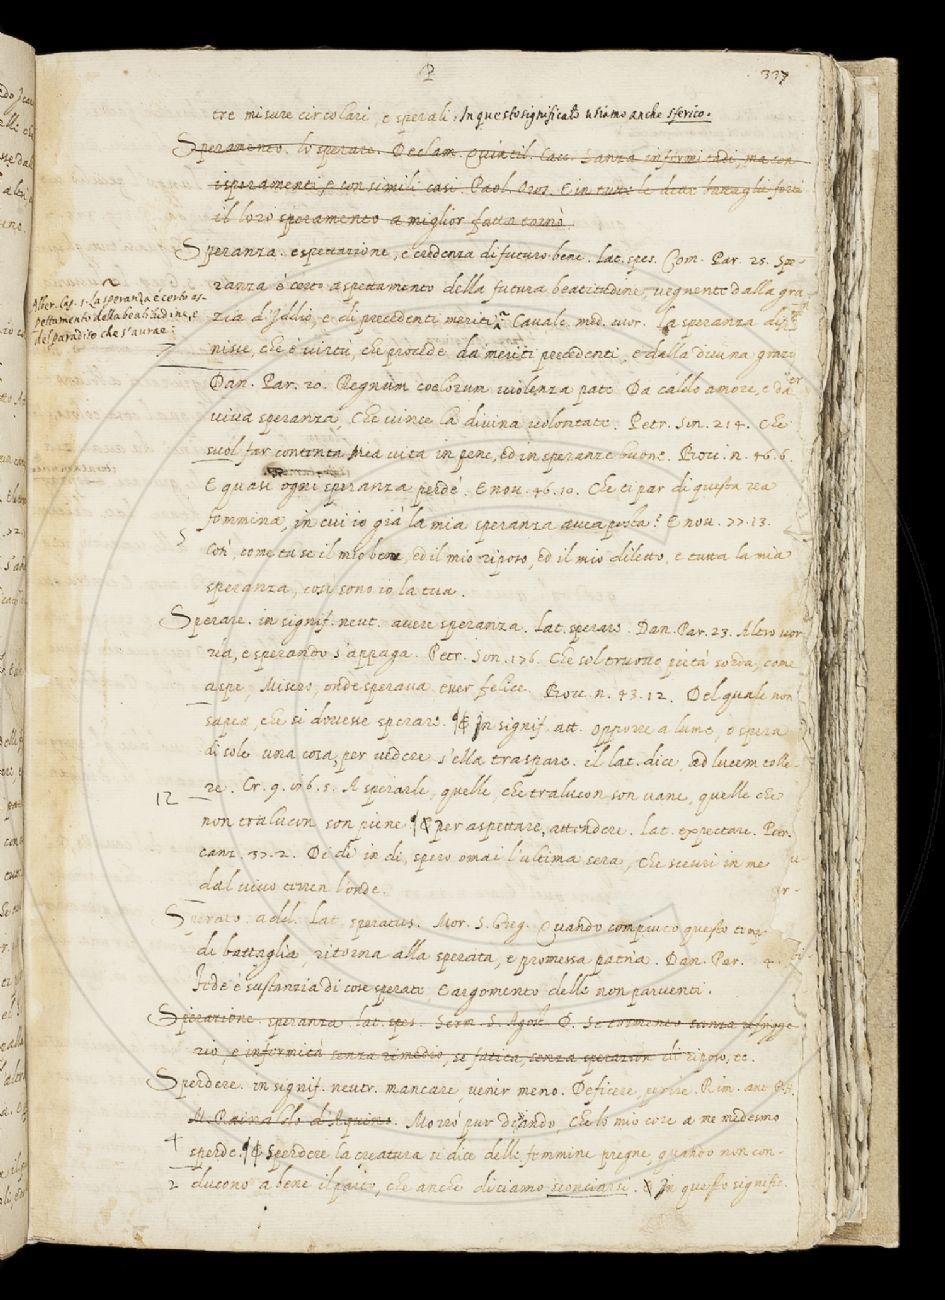 P
337
tre misure circolari, e sperali. In questo significato usiamo anche sferico.
Speramento. lo sperare. Declam. Quintil. Cacc. Sanza infermitadi, ma con
isperamenti, e con simili casi. Paol. Oros. E in tutte le dette battaglie forti
il loro speramento a miglior fatta tornò.
Speranza. espettazione, e credenza di futuro bene. lat. spes. Com. Par. 25. Spe-
ranza è certo aspettamento della futura beatitudine, vegnente dalla gra-
zia d'Iddio, e di precedenti meriti. Cavalc. med. cuor. La speranza
nisce, che è virtù, che procede da' meriti precedenti, e dalla divina grazia
Dan. Par. 20. Regnum coelorum violenza pate Da caldo amore, e da
viva speranza, Che vince la divina volontate. Petr. Son. 214. Che
suol far contenta Mia vita in pene, ed in speranze buone. Bocc. n. 46. 6.
E quasi ogni speranza perdè. E nov. 46. 10. Che ti par di questa rea
femmina, in cui io già la mia speranza aveva posta? E nov. 77. 13.
Così, come tu se il mio bene, ed il mio riposo, ed il mio diletto, e tutta la mia
speranza, così sono io la tua.
Alber. Cap. 1. La speranza è certo as-
pettamento della beatitudine, e
del paradiso che s'aurae:
Sperare. in signif. neut. avere speranza. lat. sperare. Dan. Par. 23. Altro vor-
ria, e sperando s'appaga. Petr. Son. 176. Che sol truovo pietà sorda, com'
aspe, Misero, onde sperava esser felice. Bocc. n. 43. 12. Del quale non
sapea, che si dovesse sperare. § In signif. att. opporre a lume, o spera
di sole una cosa, per vedere s'ella traspare. il lat. dice, ad lucem tolle-
re. Cr. 9. 86. 5. A sperarle, quelle, che tralucon son vane, quelle che
12
non tralucon son piene. § per aspettare, attendere. lat. expectare. Petr.
canz. 37. 2. Di dì in dì, spero omai l'ultima sera, Che scevri in me
dal vivo terren l'onde.
Sperato. add. lat. speratus. Mor. S. Greg. Quando compiuto questo
di battaglia, ritorna alla sperata, e promessa patria. Dan. Par.
Fede è sustanzia di cose sperate E argomento delle non parventi.
Sperazione. speranza. lat. spes. Serm. S. Agost. D. Se tormento sanza refrigge
rio, e infermità senza rimedio, se fatica, senza sperazion di riposo, ec.
Sperdere. in signif. neutr. mancare, venir meno. Deficere, perire. Rim. ant. P. N.
M. Rainaldo d'Aquino. Morrò pur dicendo, Che lo mio core a me medesmo
sperde. § Sperdere la creatura si dice delle femmine pregne, quando non con-
2 ducono a bene il parto, che anche diciamo sconciarsi. § In questo signific.